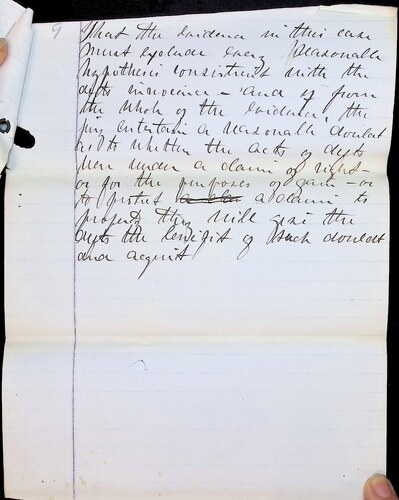 9 That the Evidence in this case
must exclude every reasonable
hypothesis consistent with the
defts innocence - and if from
the whole of the Evidence, the
jury entertain a reasonable doubt
as to whether the acts of defts
were under a claim of right -
or for the purposes of gain - or
to protect a claim to
property they will give the
defts the benefit of such doubt
and acquit